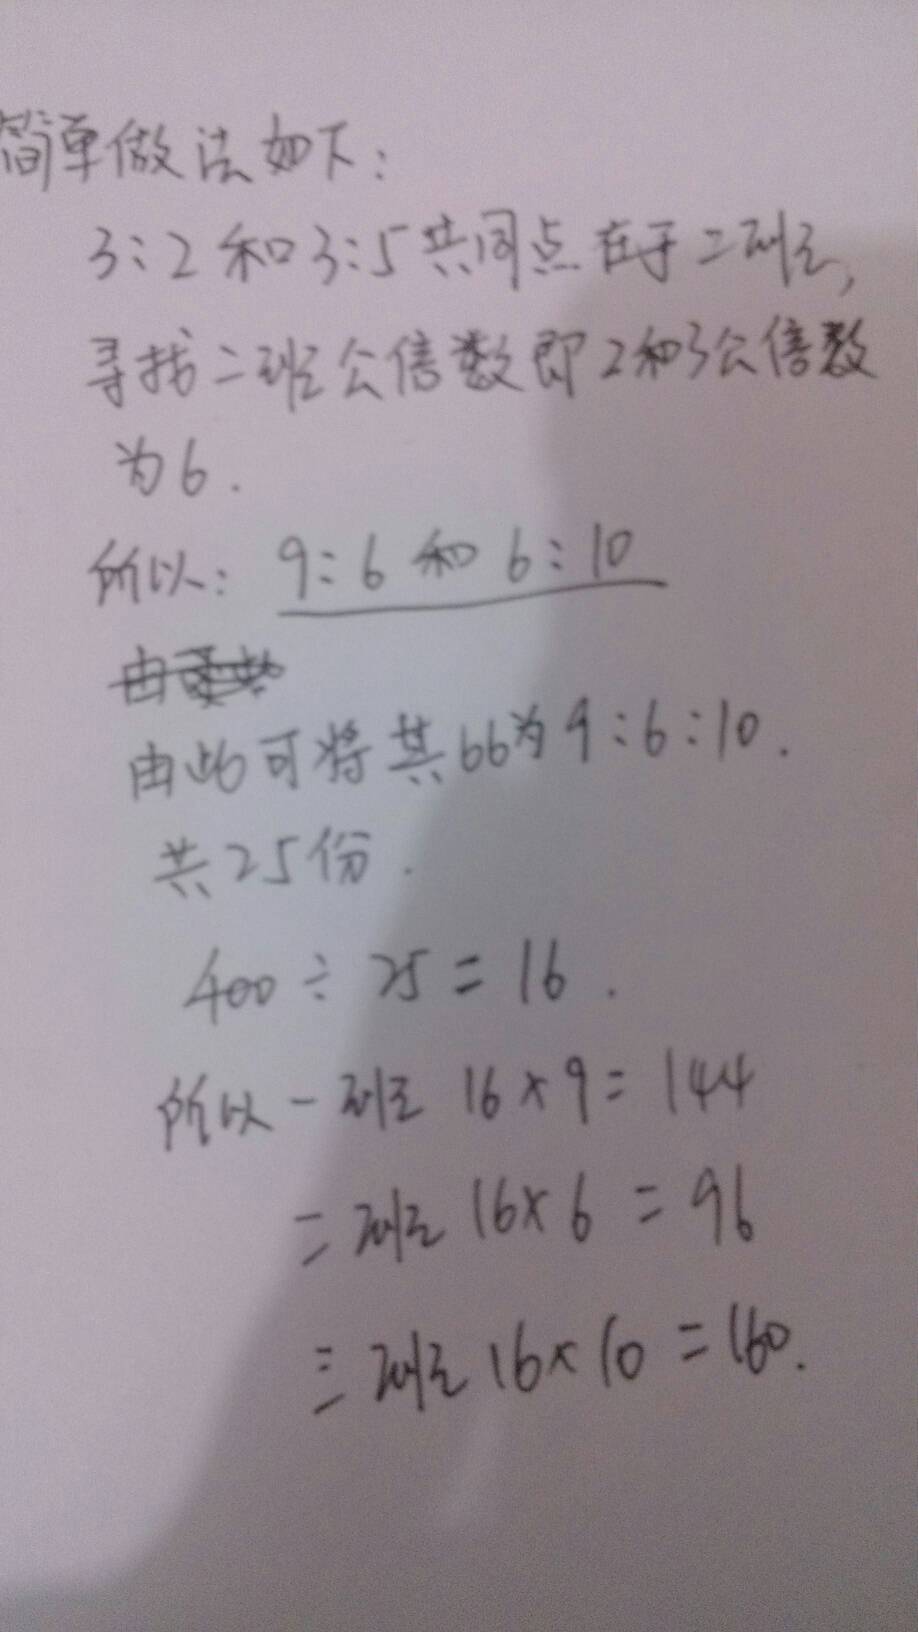 简单做法如下:
3:2和3:5共同点在于二班,
寻找二班公倍数即2和3公倍数
为6.
所以: 9:6和6:10
由此可将其比为9:6:10.
共25份.
400÷25=16.
所以一班 16×9=144
二班 16×6=96
三班 16×10=160.